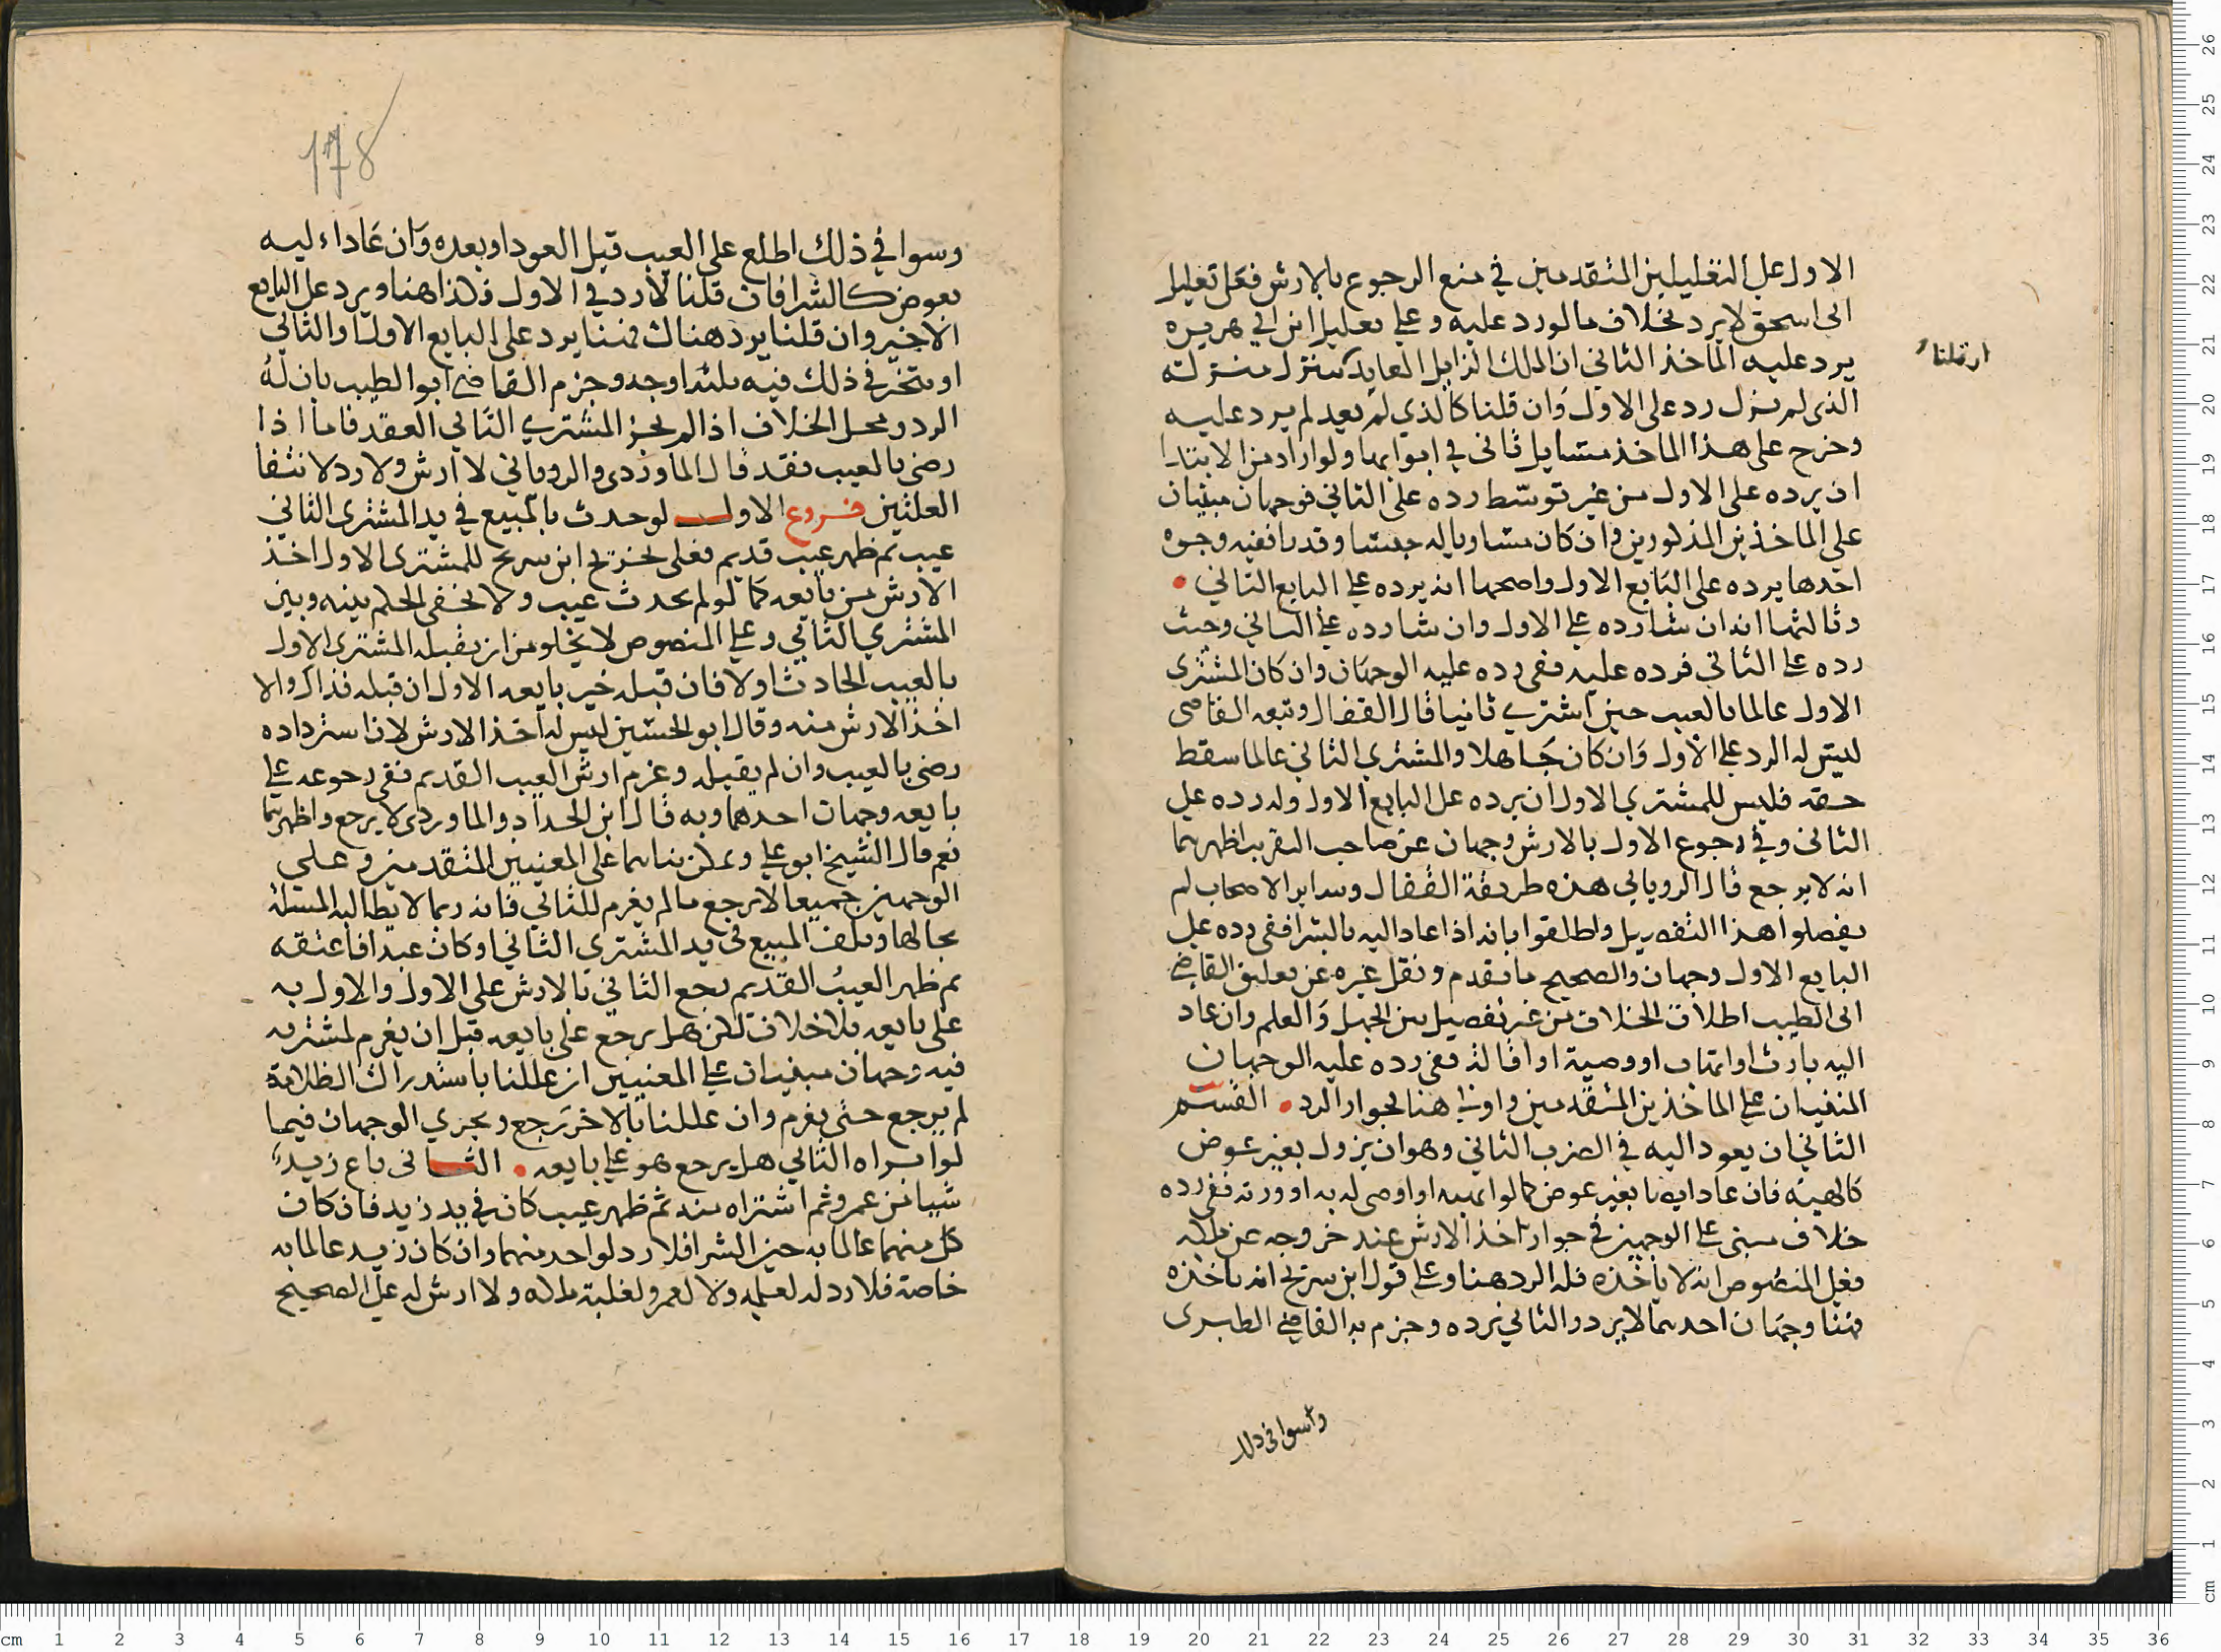 الاول على التعليلين المتقدمين في منع الرجوع بالارش فعلى تعليل
ابى اسحق لا يرد بخلاف ما لو رد عليه وعلى تعليل ابن ابي هريره
يرد عليه الماخذ الثاني ان الملك الزايل العايد كمنزل منزلته
ان قلنا
الذى لم يزل رد على الاول وان قلنا كالذي لم يعد لم يرد عليه
وخرج على هذا الماخذ مسايل تاتى في ابوابها ولو اراد من الابتدا
ان يرده على الاول من غير توسط رده على الثاني فوجهان مبنيان
على الماخذين المذكورين وان كان مساويا له جنسا وقدرا ففيه وجوه
احدها يرده على البايع الاول واصحها انه يرده على البايع الثاني
وثالثها انه ان شا رده على الاول وان شا رده على الثاني وحيث
رده على الثاني فرده عليه ففي رده عليه الوجهان وان كان المشترى
الاول عالما بالعيب حين اشترى ثانيا قال القفال وتبعه القاضى
ليس له الرد على الاول وان كان جاهلا والمشتري الثاني عالما سقط
حقه فليس للمشتري الاول ان يرده على البايع الاول وله رده على
الثانى وفي رجوع الاول بالارش وجهان عن صاحب التقريب اظهرهما
انه لا يرجع قال الروياني هذه طريقة القفال وساير الاصحاب لم
يفصلوا هذا التفصيل واطلقوا بانه اذا عاد اليه بالشرا ففي رده على
البايع الاول وجهان والصحيح ما تقدم ونقل غيره عن تعليق القاضي
ابى الطيب اطلاق الخلاف من غير تفصيل بين الجهل والعلم وان عاد
اليه بارث او اتهاب او وصية او اقالة ففي رده عليه الوجهان
المبنيان على الماخذين المتقدمين واولى هنا لجواز الرد القسم
الثاني ان يعود اليه في الضرب الثاني وهو ان يزول بغير عوض
كالهبة فان عاد اليه بغير عوض كما لو اتهبه او اوصى له به او ورثه ففي رده
خلاف مبنى على الوجهين في جواز اخذ الارش عند خروجه عن ملكه
فعلى المنصوص انه لا ياخذه فله الرد هنا وعلى قول ابن سريج انه ياخذه
فهنا وجهان احدهما لا يرد والثاني يرده وجزم به القاضي الطبرى
واسوا في ذلك
178
وسوا في ذلك اطلع على العيب قبل العود او بعده وان عاد اليه
بعوض كالشرا فان قلنا لا رد في الاول فكذا هنا ويرد على البايع
الاخير وان قلنا يرد هناك فهنا يرد على البايع الاول او الثاني
او يتخير في ذلك فيه ثلثة اوجه وجزم القاضي ابو الطيب بان له
الرد ومحل الخلاف اذا لم يخبر المشتري الثاني العقد فاما اذا
رضى بالعيب فقد قال الماوردى والرويانى لا ارش ولا رد لانتفا
العلتين فروع الاول لو حدث بالمبيع في يد المشترى الثاني
عيب ثم ظهر عيب قديم فعلى تخريج ابن سريج للمشترى الاول اخذ
الارش من بايعه كما لو لم يحدث عيب ولا يخفى الحكم بينه وبين
المشتري الثاني وعلى المنصوص لا يخلو من ان يقبله المشترى الاول
بالعيب الحادث اولا فان قبله خير بايعه الاول ان قبله فذاك والا
اخذ الارش منه وقال ابو الحسين ليس له اخذ الارش لان استرداده
رضى بالعيب وان لم يقبله وغرم ارش العيب القديم ففي رجوعه على
بايعه وجهان احدهما وبه قال ابن الحداد والماوردى لا يرجع واظهرهما
نعم قال الشيخ ابو علي ويمكن بناهما على المعنيين المتقدمين وعلى
الوجهين جميعا لا يرجع ما لم يغرم للثاني فانه ربما لا يطالبه المسئلة
بحالها وتلف المبيع في يد المشترى الثاني او كان عبدا فاعتقه
ثم ظهر العيب القديم رجع الثاني بالارش على الاول والاول به
على بايعه بلا خلاف لكن هل يرجع على بايعه قبل ان يغرم لمشتريه
فيه وجهان مبنيان على المعنيين ان عللنا باستدراك الظلامة
لم يرجع حتى يغرم وان عللنا بالاخر رجع ويجري الوجهان فيما
لو ابراه الثاني هل يرجع هو على بايعه الثانى باع زيد
شيا من عمرو ثم اشتراه منه ثم ظهر عيب كان في يد زيد فان كان
كل منهما عالما به حين الشرا فلا رد لواحد منهما وان كان زيد عالما به
خاصة فلا رد له لعلمه ولا لعمرو لغلبة ملكه ولا ارش له على الصحيح